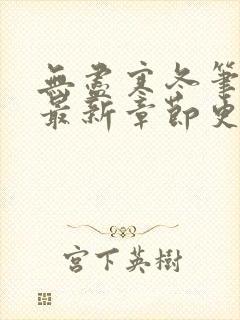 無盡寒冬筆
最新章節史
宮下英樹